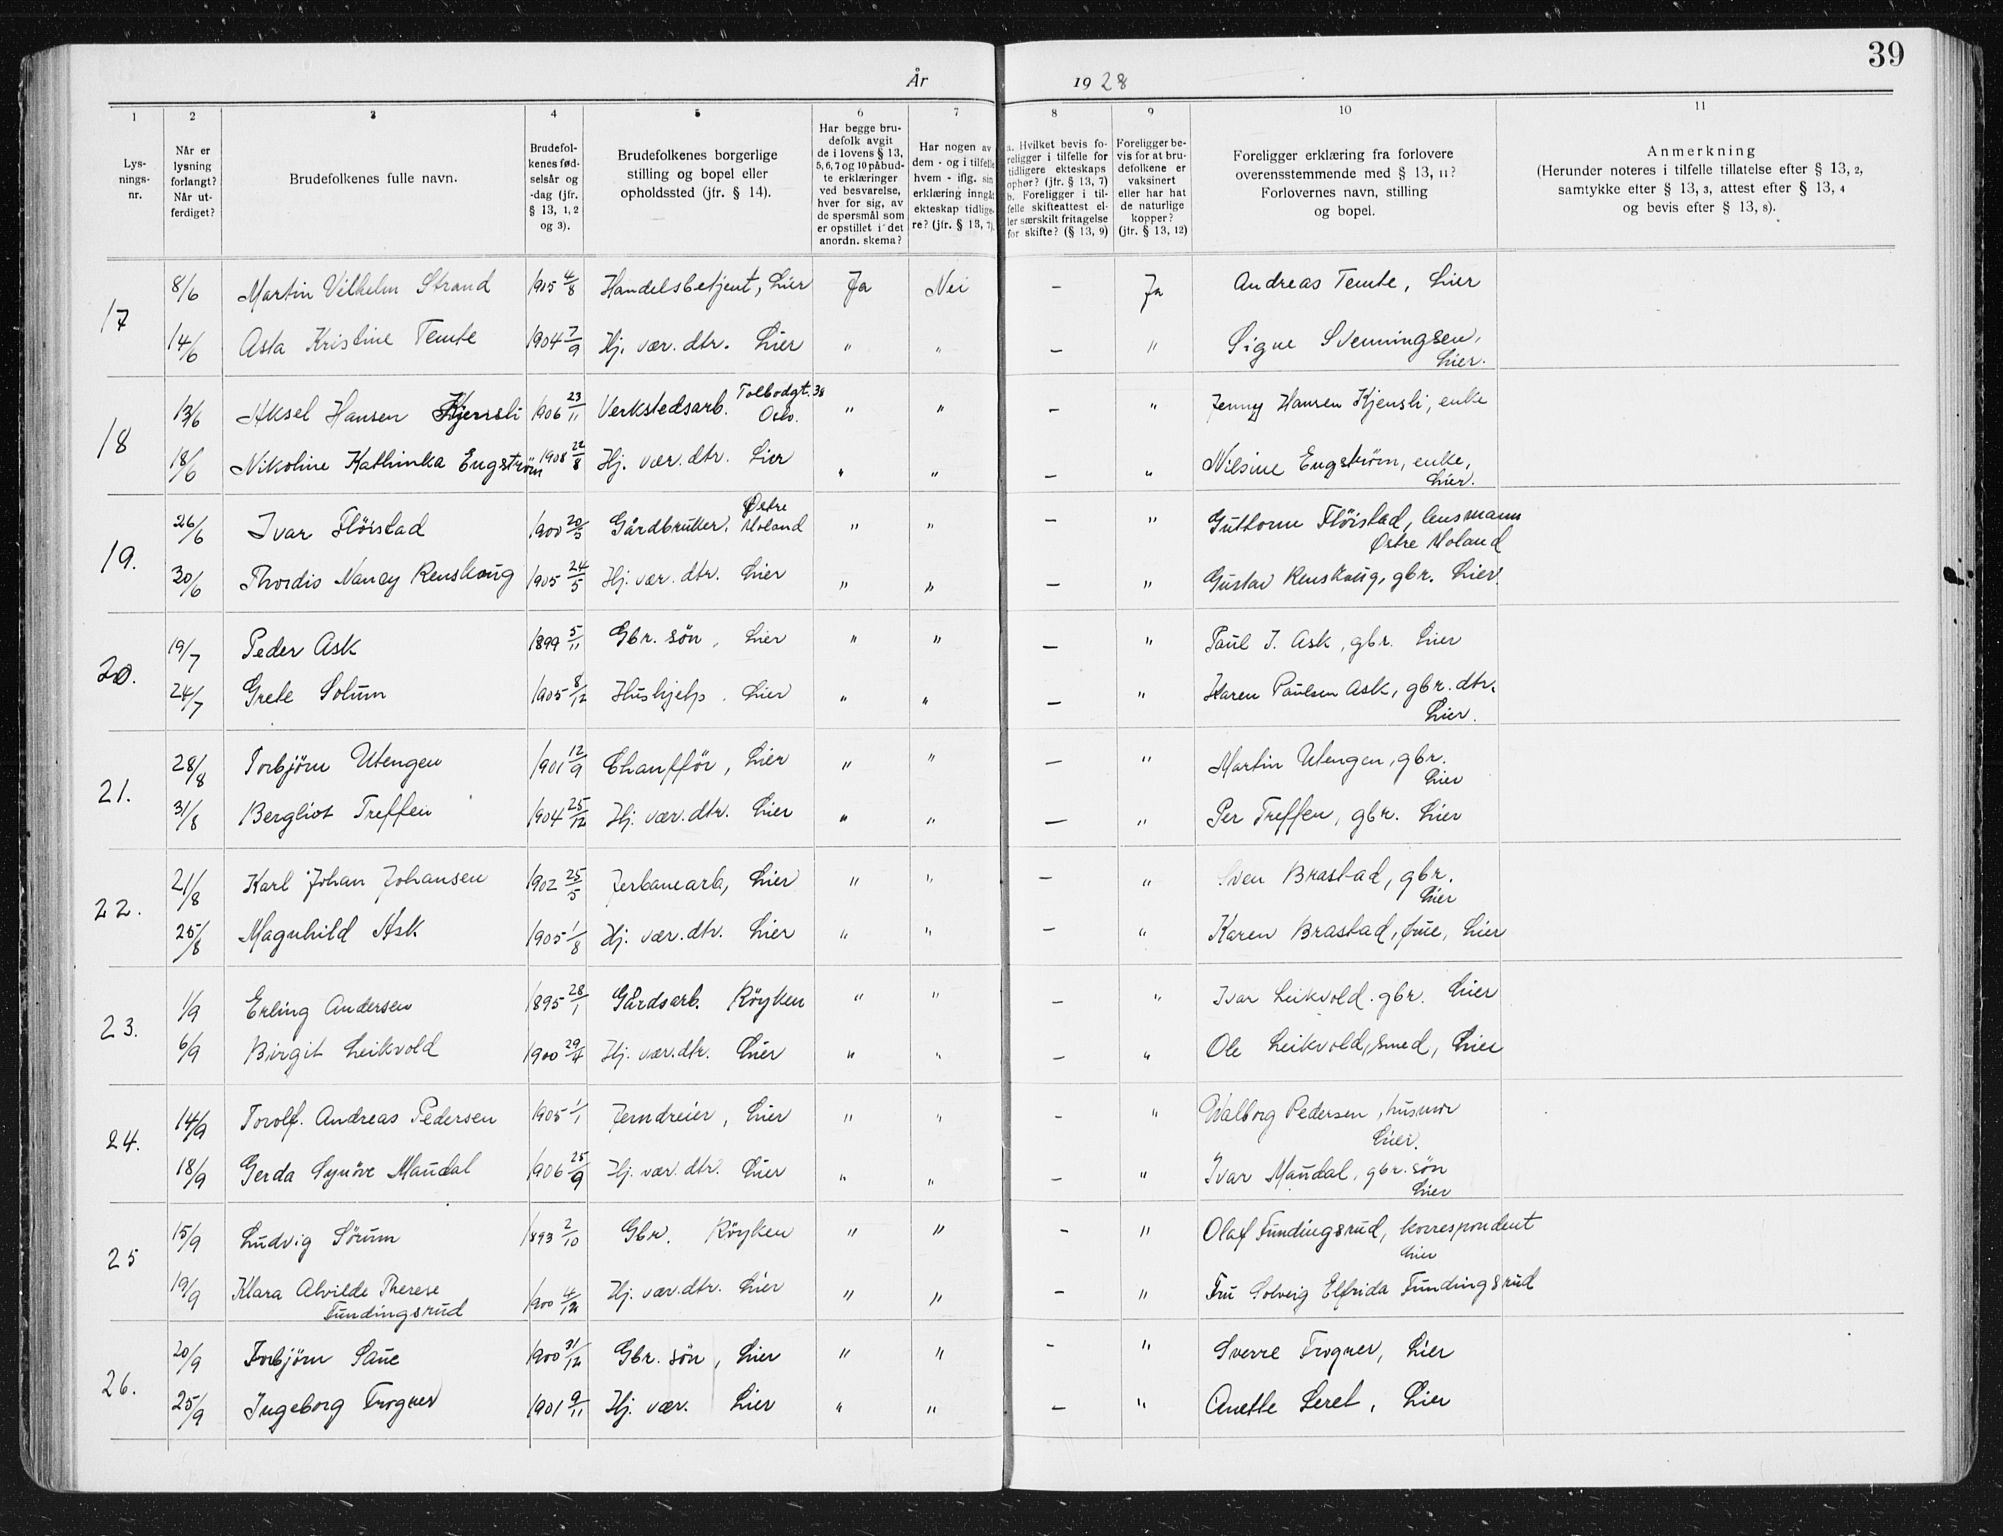 39
År 1928
1 2 3 4 5 6 7 8 9 10 11
Lysningsnr.
Når er lysning forlangt? Når utferdiget?
Brudefolkenes fulle navn.
Brudefolkenes fødselsår og -dag (jfr. § 13, 1, 2 og 3).
Brudefolkenes borgerlige stilling og bopel eller opholdssted (jfr. § 14).
Har begge brudefolk avgit de i lovens § 13, 5, 6, 7 og 10 påbudte erklæringer ved besvarelse, hver for sig, av de spørsmål som er opstillet i det anordn. skema?
Har nogen av dem - og i tilfelle hvem - iflg. sin erklæring inngåt ekteskap tidligere? (jfr. § 13, 7).
a. Hvilket bevis foreligger i tilfelle for tidligere ekteskaps ophør? (jfr. § 13, 7) b. Foreligger i tilfelle skifteattest eller særskilt fritagelse for skifte? (§ 13, 9)
Foreligger bevis for at brudefolkene er vaksinert eller har hat de naturlige kopper? (jfr. § 13, 12)
Foreligger erklæring fra forlovere overensstemmende med § 13, 11? Forlovernes navn, stilling og bopel.
Anmerkning (Herunder noteres i tilfelle tillatelse efter § 13, 2, samtykke efter § 13, 3, attest efter § 13, 4 og bevis efter § 13, 8).
17 8/6 Martin Vilhelm Strand 1905 4/8 Handelsbetjent, Lier Ja Nei — Ja Andreas Temte, Lier
14/6 Asta Kristine Temte 1904 7/9 Hj. vær. dtr. Lier " " — " Signe Svenningsen, Lier.
18 13/6 Aksel Hansen Kjensli 1906 23/11 Verkstedsarb. Tolbodgt. 38 Oslo. " " — " Jenny Hansen Kjensli, enke
18/6 Nikoline Kathinka Engstrøm 1908 22/8 Hj. vær. dtr. Lier " " — " Nilsine Engstrøm, enke, Lier.
19. 26/6 Ivar Fløistad 1900 20/5 Gårdbruker. Østre Moland " " — " Guttorm Fløistad, lensmann Østre Moland
30/6 Thordis Nancy Renskoug 1905 24/5 Hj. vær. dtr. Lier " " — " Gustav Renskoug, gbr. Lier.
20. 19/7 Peder Ask 1899 5/11 Gbr. søn, Lier " " — " Paul I. Ask, gbr. Lier
24/7 Grete Solum 1905 8/12 Hushjelp. Lier " " — " Karen Paulsen Ask, gbr. dtr. Lier.
21. 28/8 Torbjørn Utengen 1901 12/9 Chauffør, Lier " " — " Martin Utengen, gbr. Lier
31/8 Bergliot Treffen 1904 25/12 Hj. vær. dtr. Lier " " — " Per Treffen, gbr. Lier
22. 21/8 Karl Johan Johansen 1902 25/5 Jerbanearb, Lier " " — " Sven Brastad, gbr. Lier
25/8 Magnhild Ask 1905 1/8 Hj. vær. dtr. Lier " " — " Karen Brastad, frue, Lier
23. 1/9 Erling Andersen 1895 28/1 Gårdsarb. Røyken " " — " Ivar Leikvold. gbr. Lier
6/9 Birgit Leikvold 1900 29/4 Hj. vær. dtr. Lier " " — " Ole Leikvold, smed, Lier
24. 14/9 Torolf. Andreas Pedersen 1905 1/1 Jerndreier, Lier " " — " Walborg Pedersen, husmor Lier.
18/9 Gerda Synøve Maudal 1906 25/9 Hj. vær. dtr. Lier " " — " Ivar Maudal, gbr. søn Lier
25 15/9 Ludvig Sørum 1893 2/10 Gbr. Røyken " " — " Olaf Fundingsrud, korrespondent Lier
19/9 Klara Alvilde Therese Fundingsrud 1900 4/12 Hj. vær. dtr. Lier " " — " Fru Solveig Elfrida Fundingsrud
26. 20/9 Torbjørn Saue 1900 31/12 Gbr. søn, Lier " " — " Sverre Trogner, Lier
25/9 Ingeborg Trogner 1901 9/11 Hj. vær. Lier " " — " Anette Leret, Lier